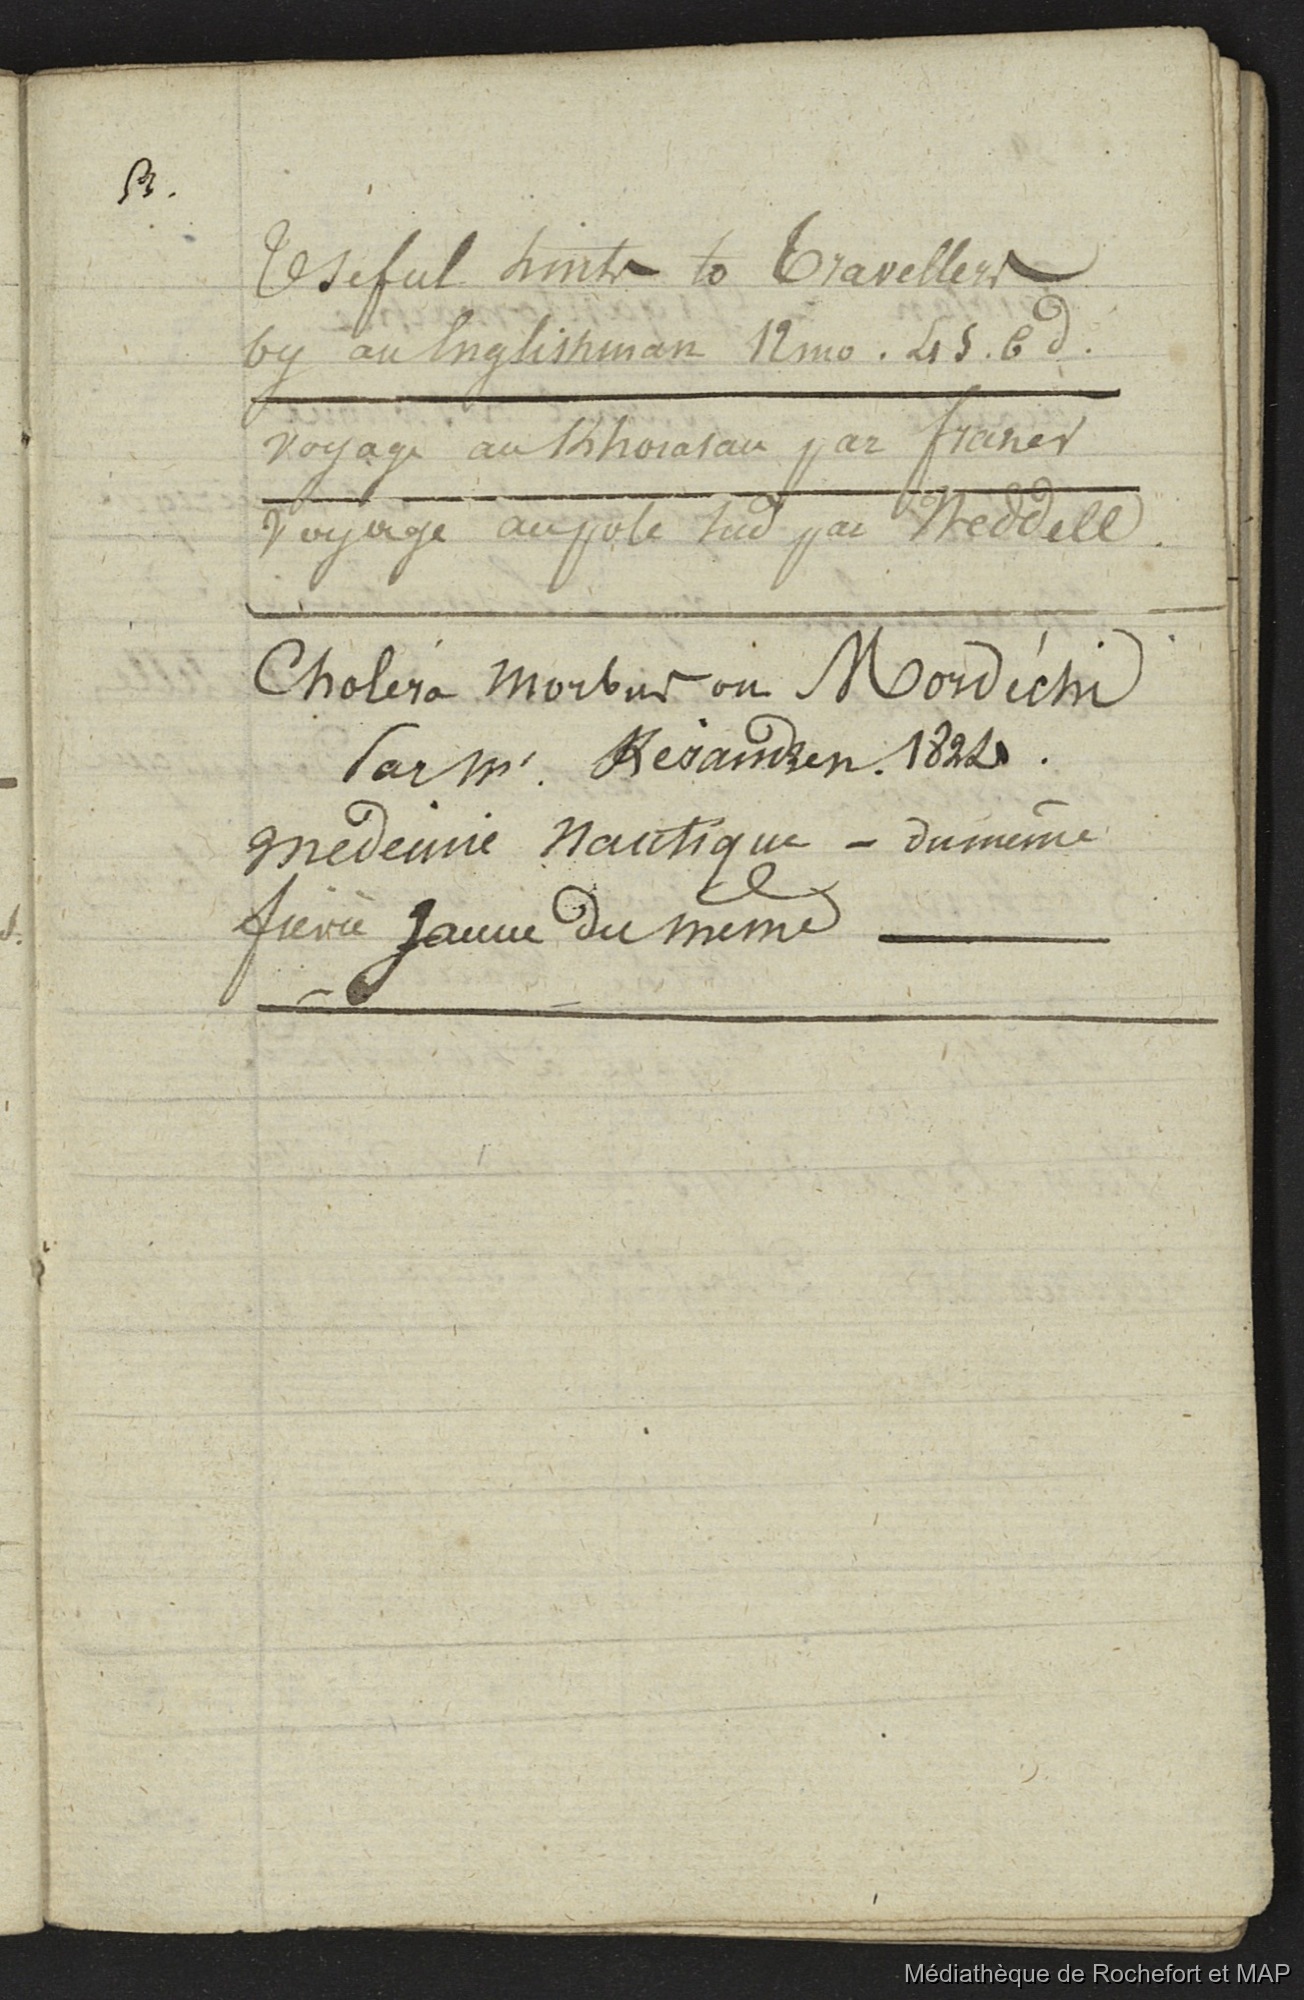 B.
Useful hints to Travellers
by an Englishman 12mo. 4s. 6d.
voyage au Khorasan par fraser
voyage au pole sud par Weddell.
Choléra morbus ou Mordéchi
Par Mr. Keraudren. 182
medecine Nautique - du même
fievre Jaune du même
Médiathèque de Rochefort et MAP